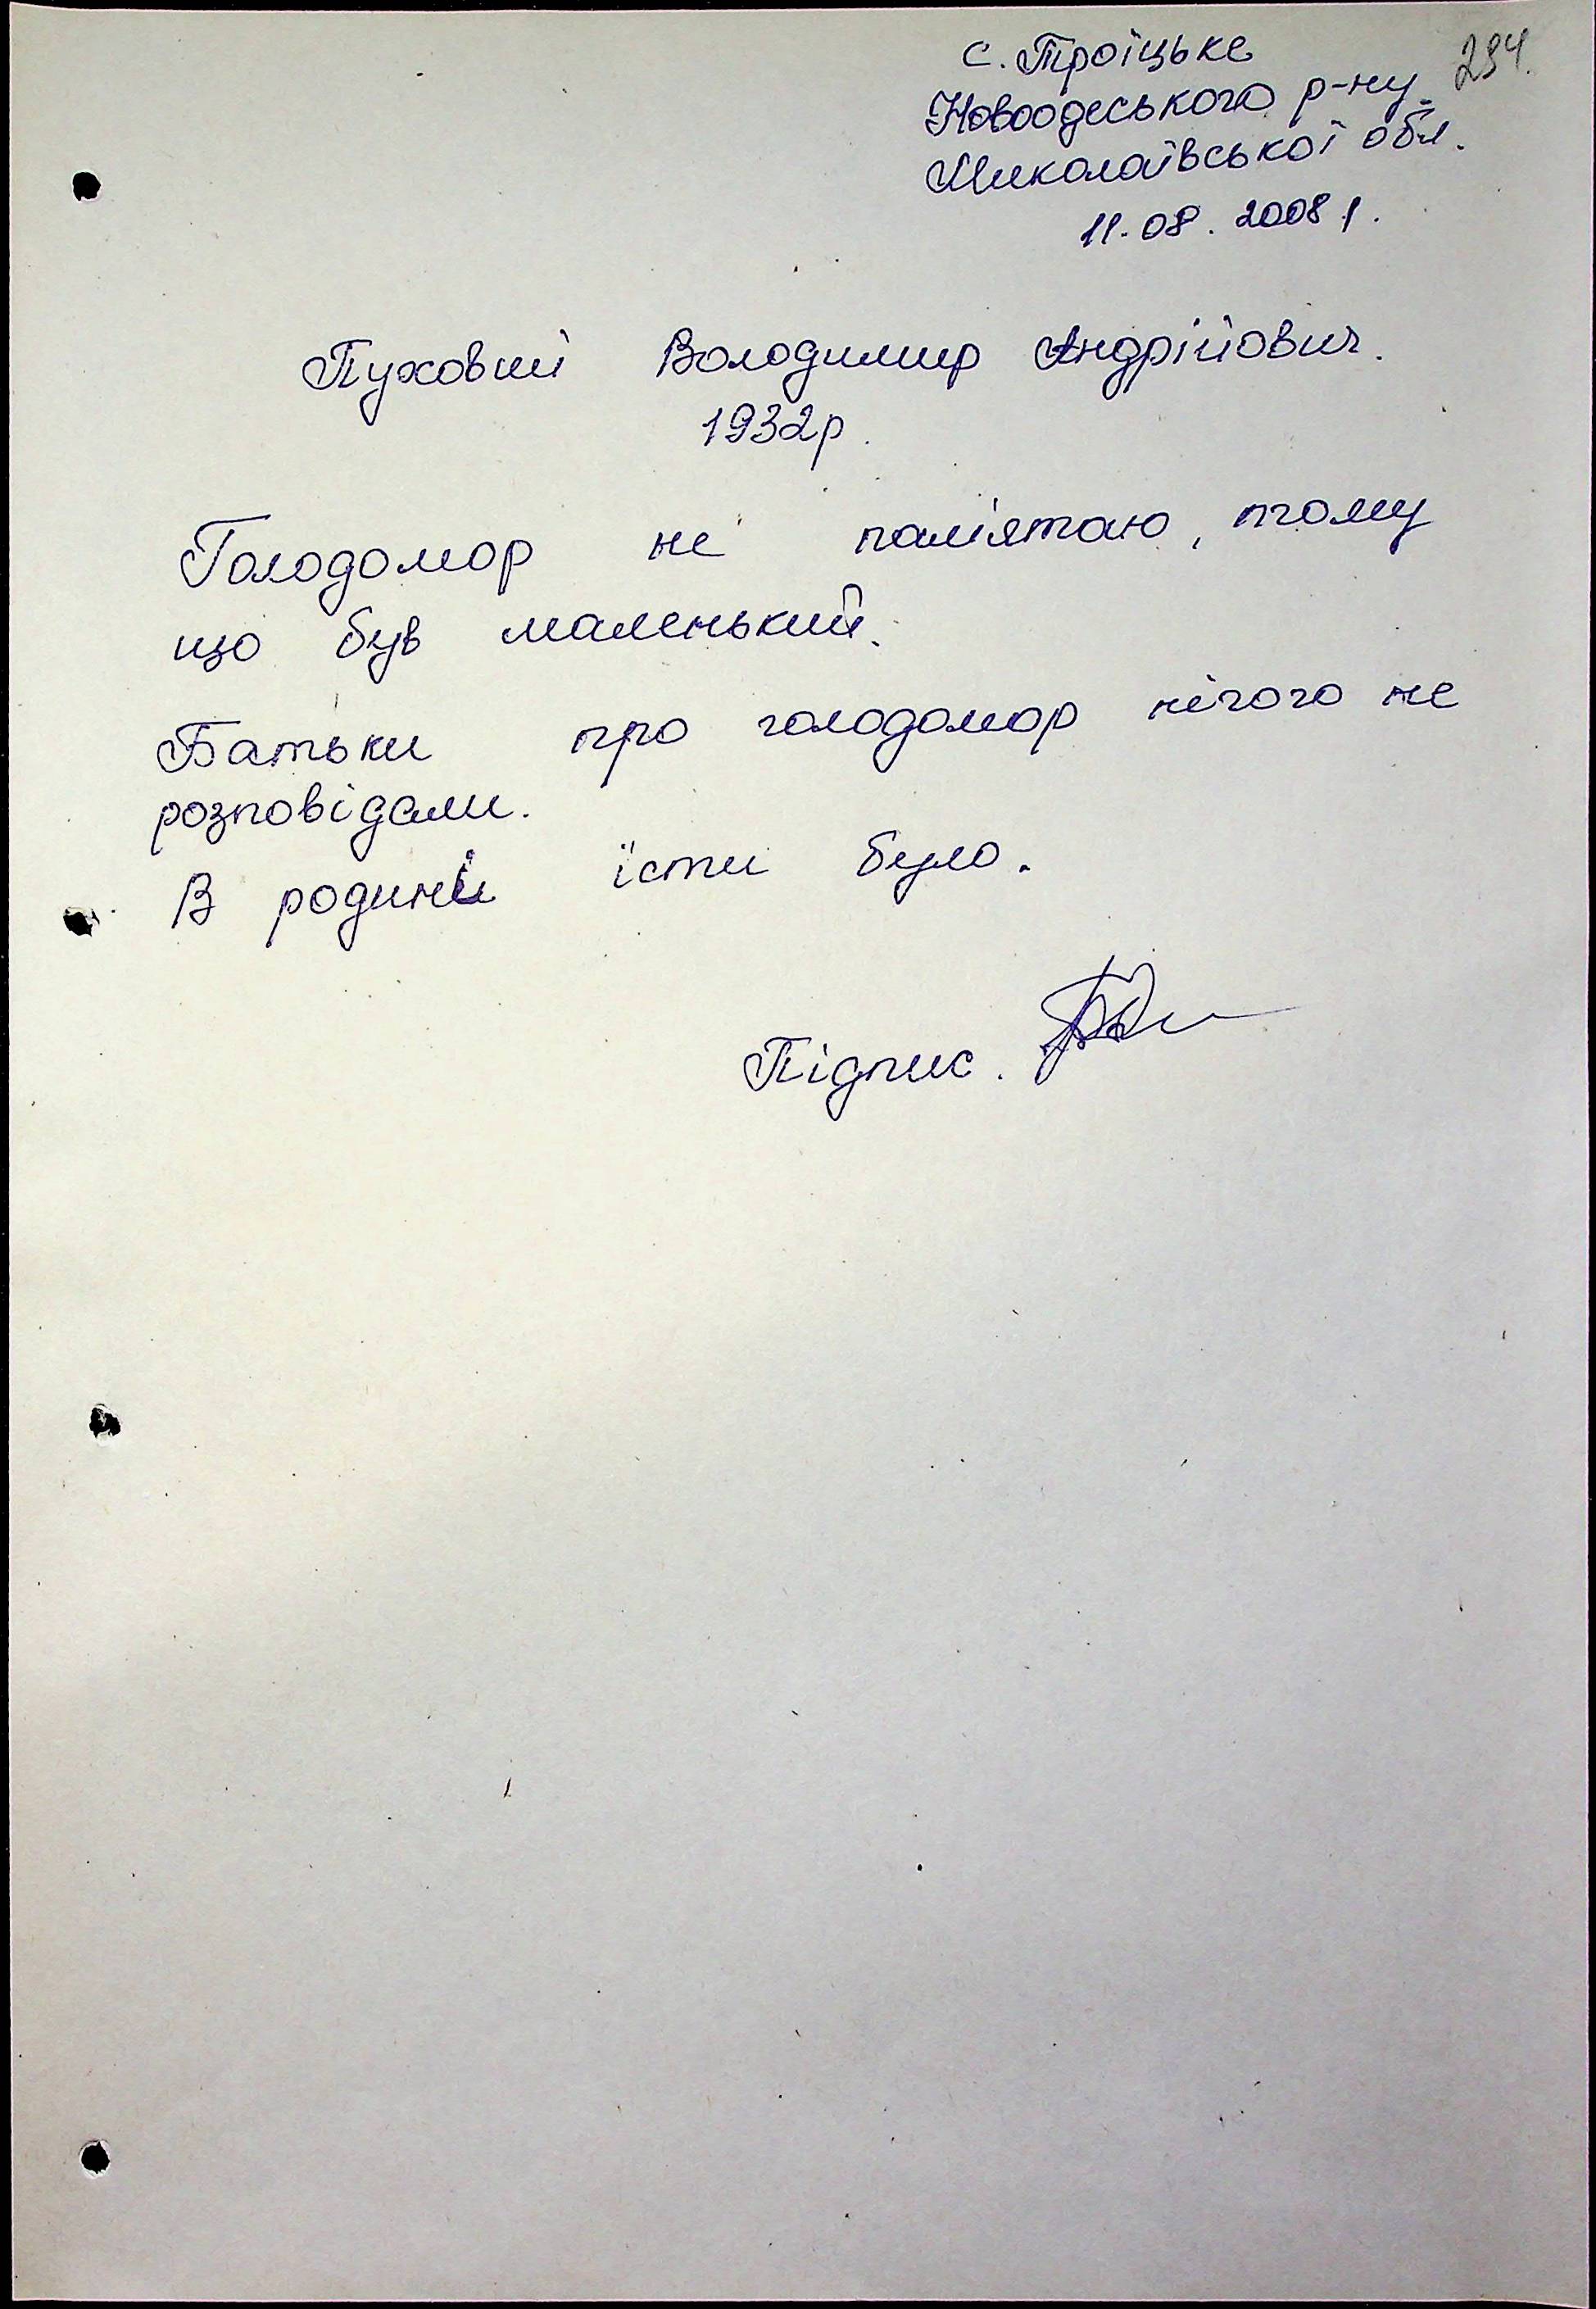 с. Троїцьке
294.
Новоодеського р-ну
Миколаївської обл.
11.08.2008 р.
Пуховий Володимир Андрійович.
1932р.
Голодомор не пам'ятаю, тому
що був маленький.
Батьки про голодомор нічого не
розповідали.
В родині їсти було.
Підпис.